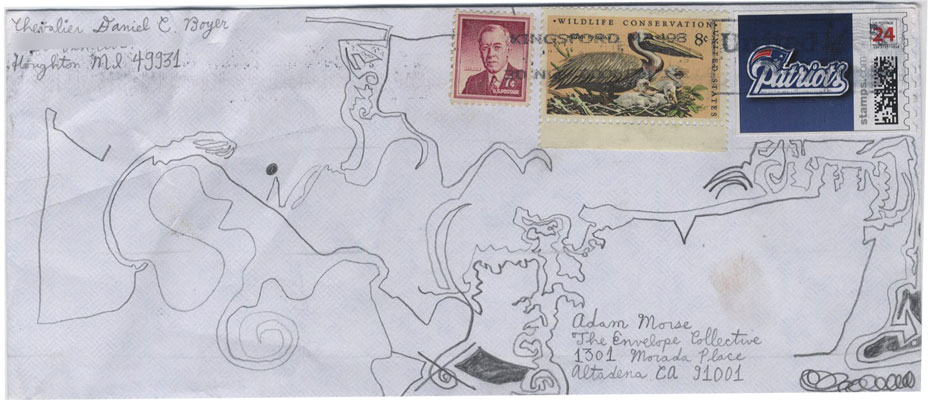 Chevalier Daniel C. Boyer
Houghton MI 49931
7¢
U.S. POSTAGE
WILDLIFE CONSERVATION
8¢
UNITED STATES
KINGSFORD MI 498
24
Patriots
stamps.com
Adam Morse
The Envelope Collective
1301 Morada Place
Altadena CA 91001